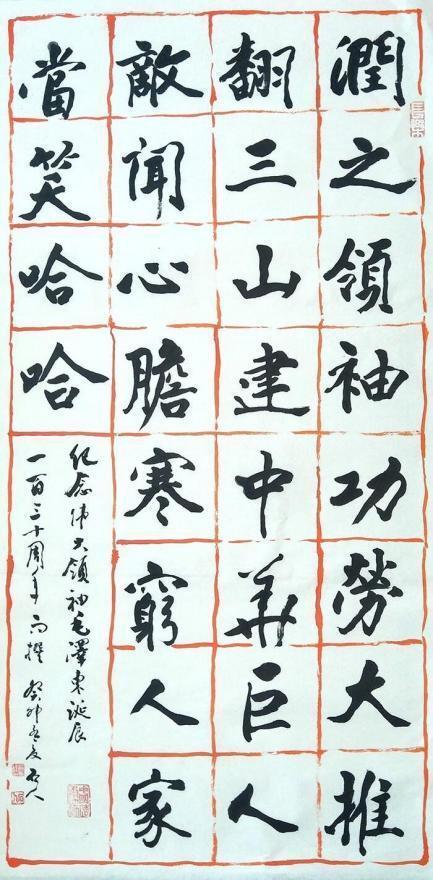 潤之領袖功勞大推
翻三山建中華巨人
敵聞心膽寒窮人家
當笑哈哈
紀念偉大領袖毛澤東誕辰
一百三十周年而撰 癸卯冬友石人